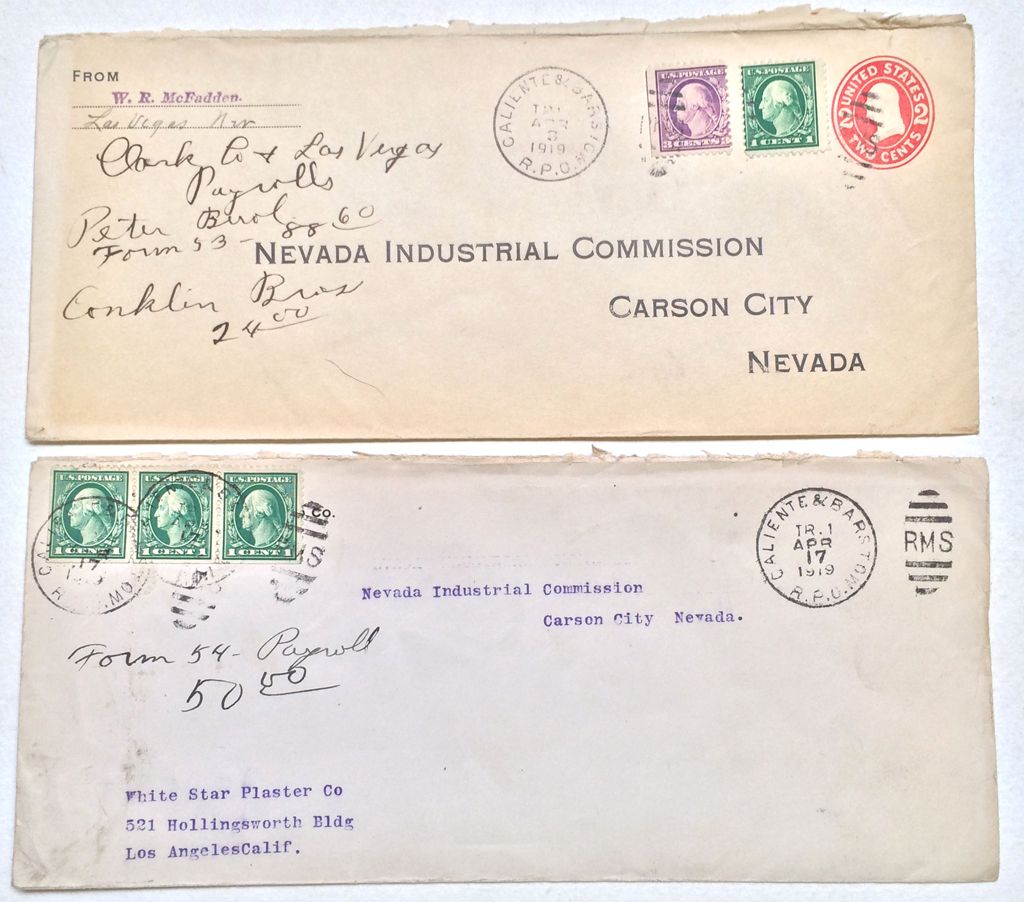 FROM
W. R. McFadden.
Las Vegas Nev
Clark Co & Las Vegas
Payrolls
Peter Buol 88 60
Form 53 -
Conklin Bros
24 00
CALIENTE & BARSTOW
TR.1
APR
3
1919
R.P.O.
U.S. POSTAGE
3 CENTS 3
U.S. POSTAGE
1 CENT 1
UNITED STATES
2 2
TWO CENTS
S
NEVADA INDUSTRIAL COMMISSION
CARSON CITY
NEVADA
U.S. POSTAGE
1 CENT 1
U.S. POSTAGE
1 CENT 1
U.S. POSTAGE
1 CENT 1
CO.
RMS
CALIENTE & BARSTOW
TR.1
APR
17
1919
R.P.O.
RMS
Nevada Industrial Commission
Carson City Nevada.
Form 54 - Payroll
50 00
White Star Plaster Co
521 Hollingsworth Bldg
Los AngelesCalif.